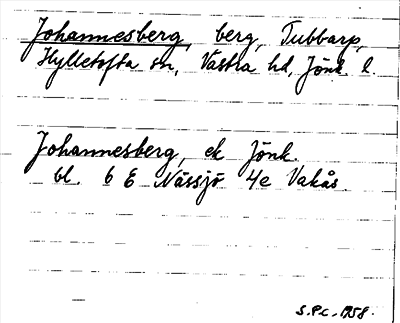 Johannesberg, berg, Tubbarp,
Hylletofta sn, Västra hd, Jönk. l.
Johannesberg, ek Jönk.
bl. 6 E Nässjö 4e Vakås.
S.P.C. 1958.